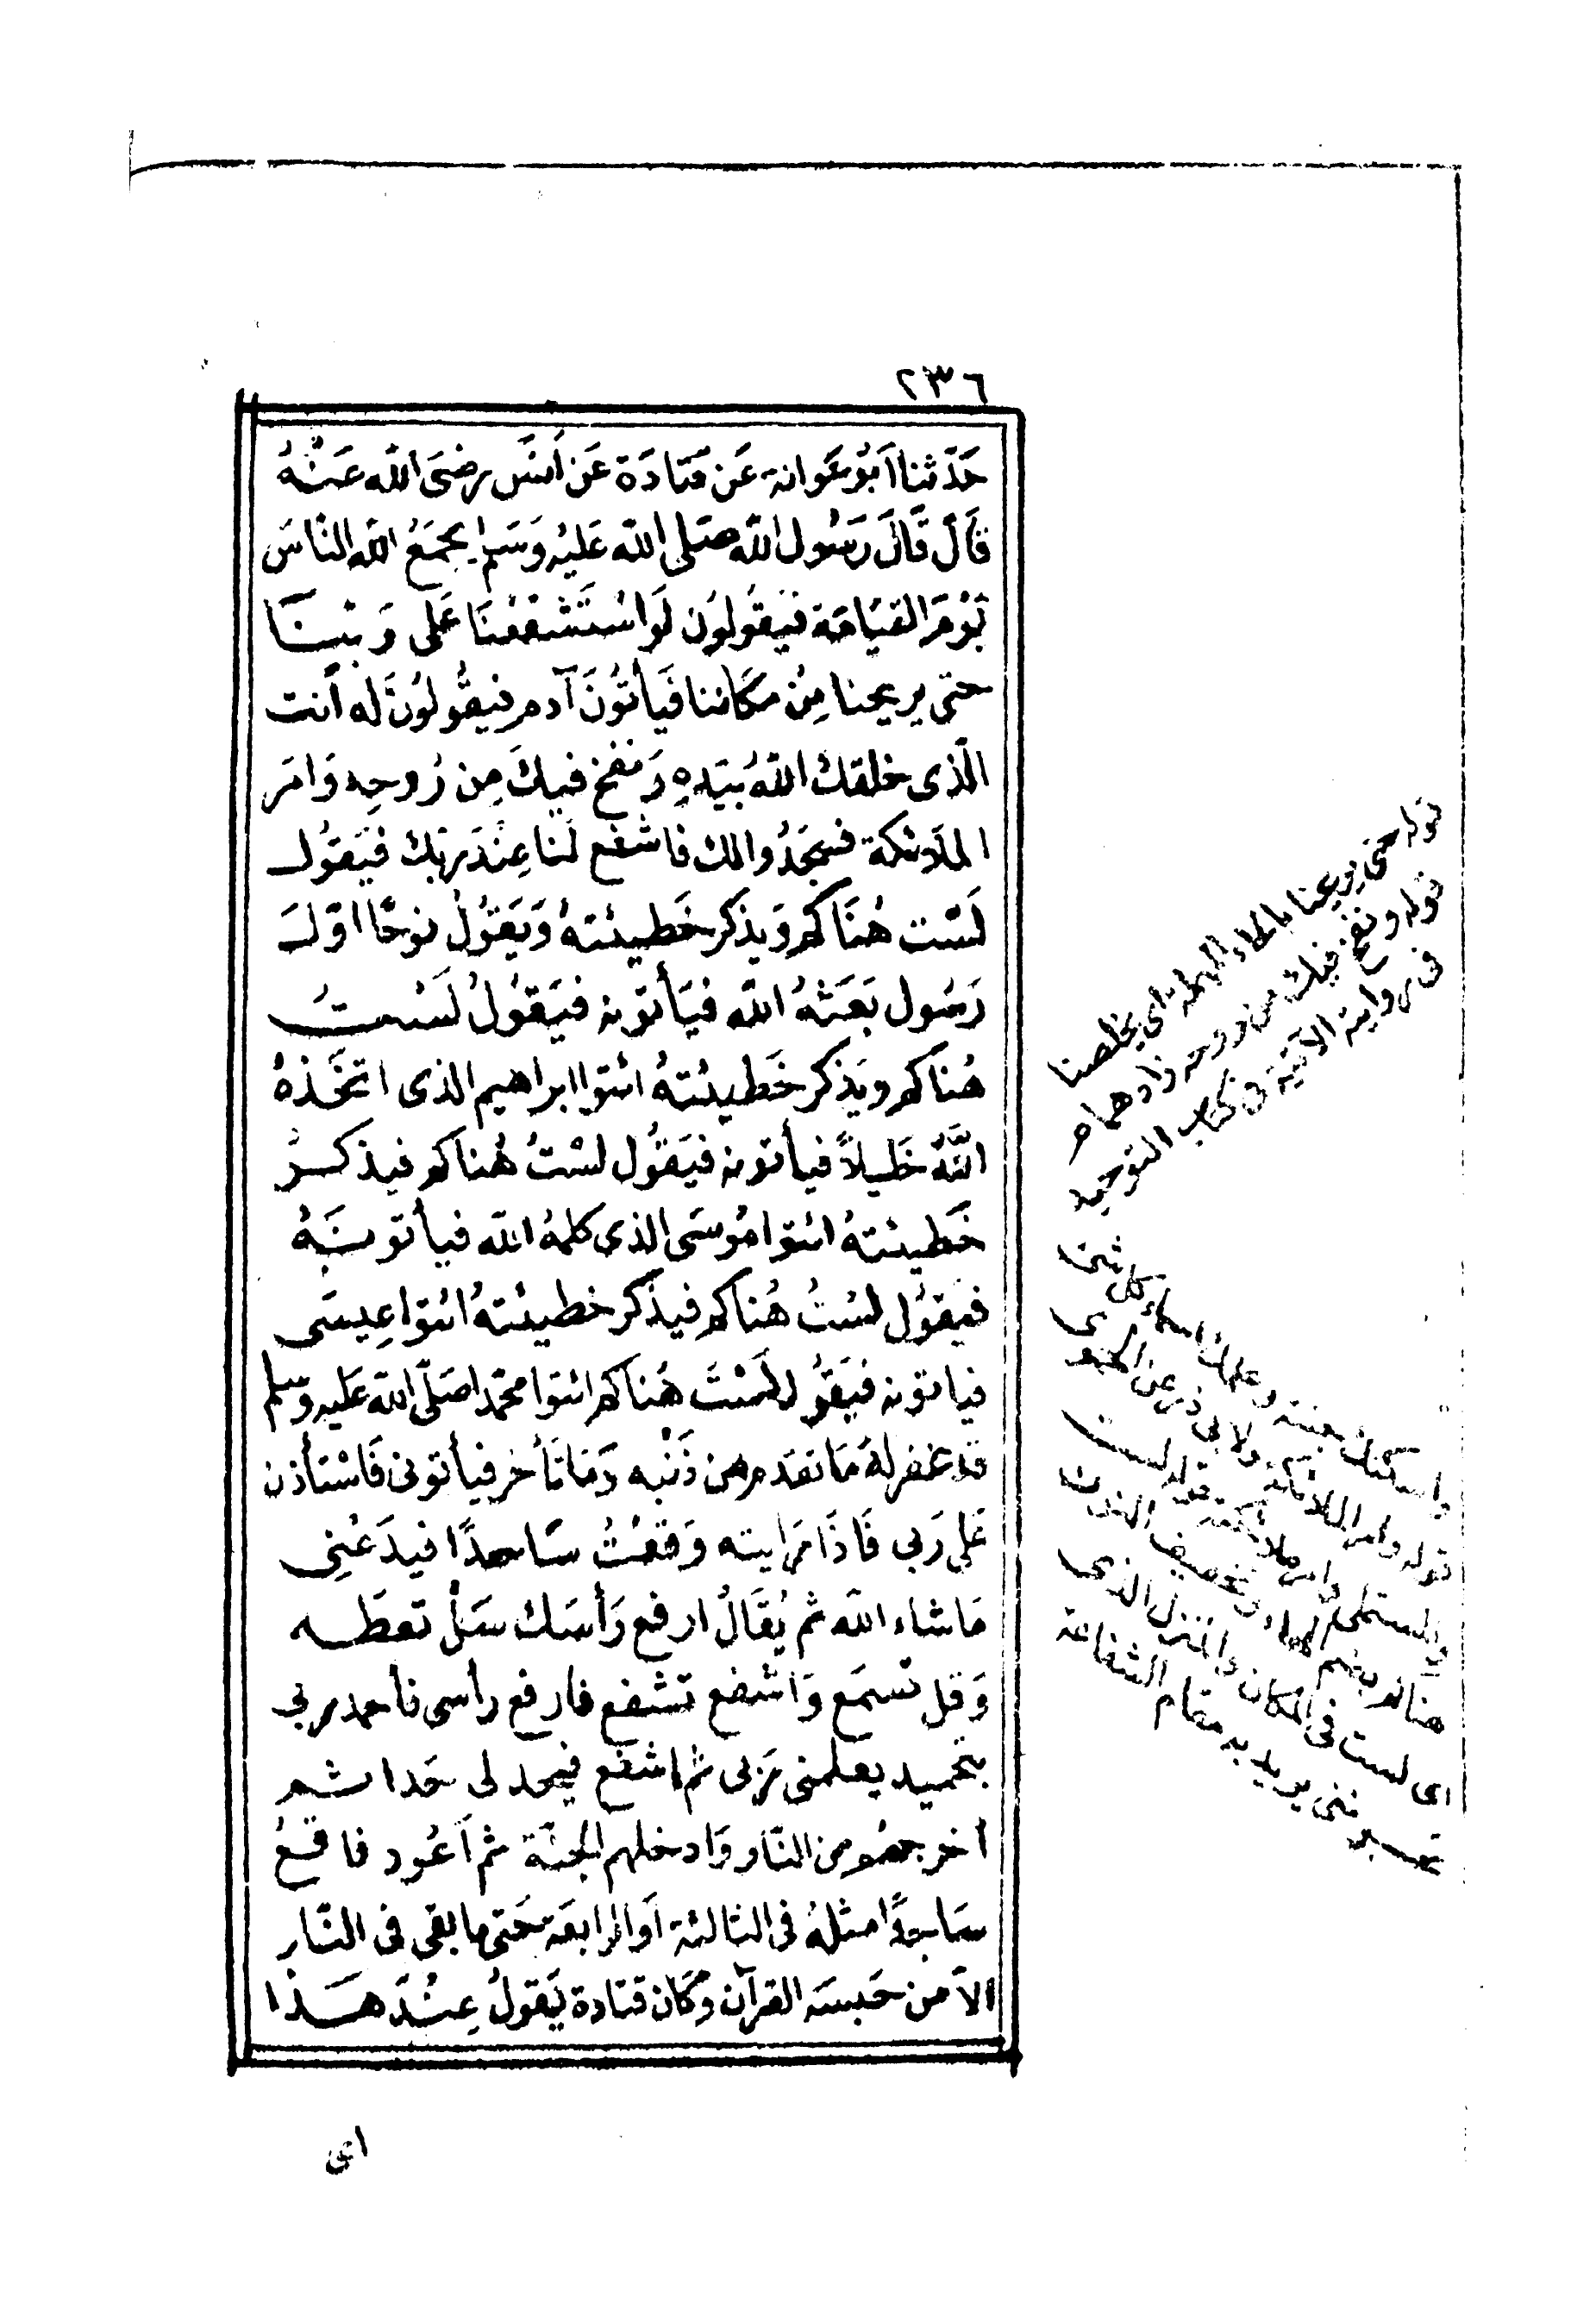 ٢٣٦
حَدّثنا اَبُو عَوانة عَن قتَادَة عَن أنسٍ رضىَ الله عَنْهُ
قَالَ قَالَ رَسُول الله صَلى الله عَليْه وَسَلم يجمَعُ الله النّاسَ
يَوْمَ القيَامَة فيَقُولوُن لَو اسْتَشْفَعْنَا عَلى رَبّنَا
حتى يريحنا مِنْ مكَاننا فَيَأتوُنَ آدم فيقُولوُنَ له أنت
الّذى خلقك اللهُ بيَدِهِ وَنفخ فيكَ مِن رُوحِه وَامَر
الملَائكة فسَجَدُوا لك فاشفع لنَا عِنْدَ ربك فيَقوُل
لَسْت هُنَاكم وَيذكر خَطيئتهُ وَيَقوُلُ نوحًا اوّلَ
رَسُول بَعَثهُ الله فيَأتونه فيَقوُلُ لَسْتُ
هُناكم ويَذكر خَطيئتهُ ائتوا ابراهيم الذى اتخَذهُ
اللَّهُ خَليلاً فيأتونه فيَقوُل لسْتُ هُناكم فيذكرُ
خَطيئتهُ ائتوا مُوسَى الذى كلمهُ الله فيأتونَهُ
فيَقوُل لسْتُ هُناكم فيذَكر خطيئتهُ ائتوا عِيسَى
فياتونه فيَقوُل لَسْتُ هُناكم ائتوا محمّدا صَلّى الله عَليه وسلم
قد غفر لهُ مَا تقدم من ذَنْبه وَمَا تَأخر فيأتونى فَاسْتأذن
عَلى رَبى فَاذَا رَايته وَقعْتُ سَاجدًا فيدَعُنِى
مَا شاء الله ثم يُقَالُ ارفع رَأسَك سَلْ تعطَه
وَقل تسمَع وَاشفع تشفع فارفع رأسى فأحمد ربى
بتحميد يعلمنى رَبى ثم اشفع فيحد لى حَدا ثم
أخرجهُم من النّار وَادخلهم الجنّة ثم اَعُود فاقعُ
سَاجدًا مثلهُ فى الثالثة اَو الرابعَة حَتى ما بقى فى النّار
الاّ من حَبسَه القرآن وَكَان قتَادة يَقولُ عِنْدَ هَذا
اى
قوله حتى يريحنا بالحاء المهملة اى يخلصنا
قوله ونفخ فيك من روحه زاد همام
فى روايته الآتية فى كتاب التوحيد
واسكنك جنته وعلمك اسماء كل شئ
قوله وامر الملائكة ولابى ذر عن الحموى
والمستملى وامر ملائكته قوله لست
هناكم بضم الهاء وتخفيف النون
اى لست فى المكان والمنزل الذى
تحسبوننى يريد به مقام الشفاعة